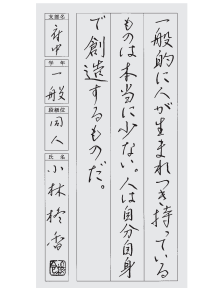 一般的に人が生まれつき持っている
ものは本当に少ない。人は自分自身
で創造するものだ。
支部名
府中
学年
一般
段級位
同人
氏名
小林柊香